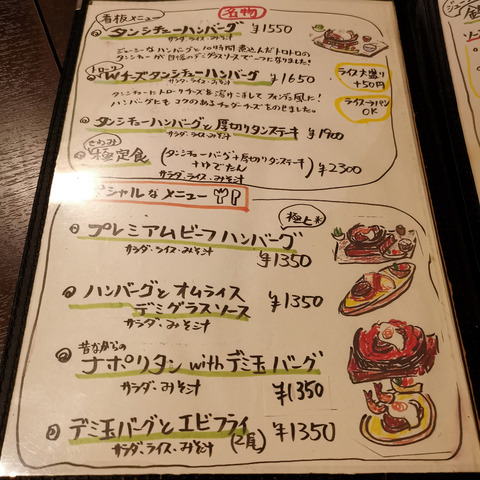 看板メニュー
名物
タンシチューハンバーグ ¥1550
サラダ・ライス・みそ汁
ジューシーなハンバーグと10時間煮込んだトロトロの
タンシチューが自慢のデミグラスソースで一つになりました!
トロ〜リ
Wチーズタンシチューハンバーグ ¥1650
サラダ・ライス・みそ汁
タンシチューにトロ〜リチーズを溶けこまして フォンデュ風に!
ハンバーグにも コクのあるチェダーチーズをのせました。
ライス大盛り
+50円
ライス→パン
OK
タンシチューハンバーグと厚切りタンステーキ ¥1900
サラダ・ライス・みそ汁
きわみ
極定食 (タンシチューバーグ+厚切りタンステーキ
+ゆでたん) ¥2300
サラダ・ライス・みそ汁
シャルなメニュー
プレミアムビーフハンバーグ
極上
サラダ・ライス・みそ汁 ¥1350
ハンバーグと オムライス ¥1350
デミグラスソース
サラダ・みそ汁
昔ながらの
ナポリタン with デミ玉バーグ
サラダ・みそ汁 ¥1350
デミ玉バーグと エビフライ (2尾) ¥1350
サラダ、ライス・みそ汁